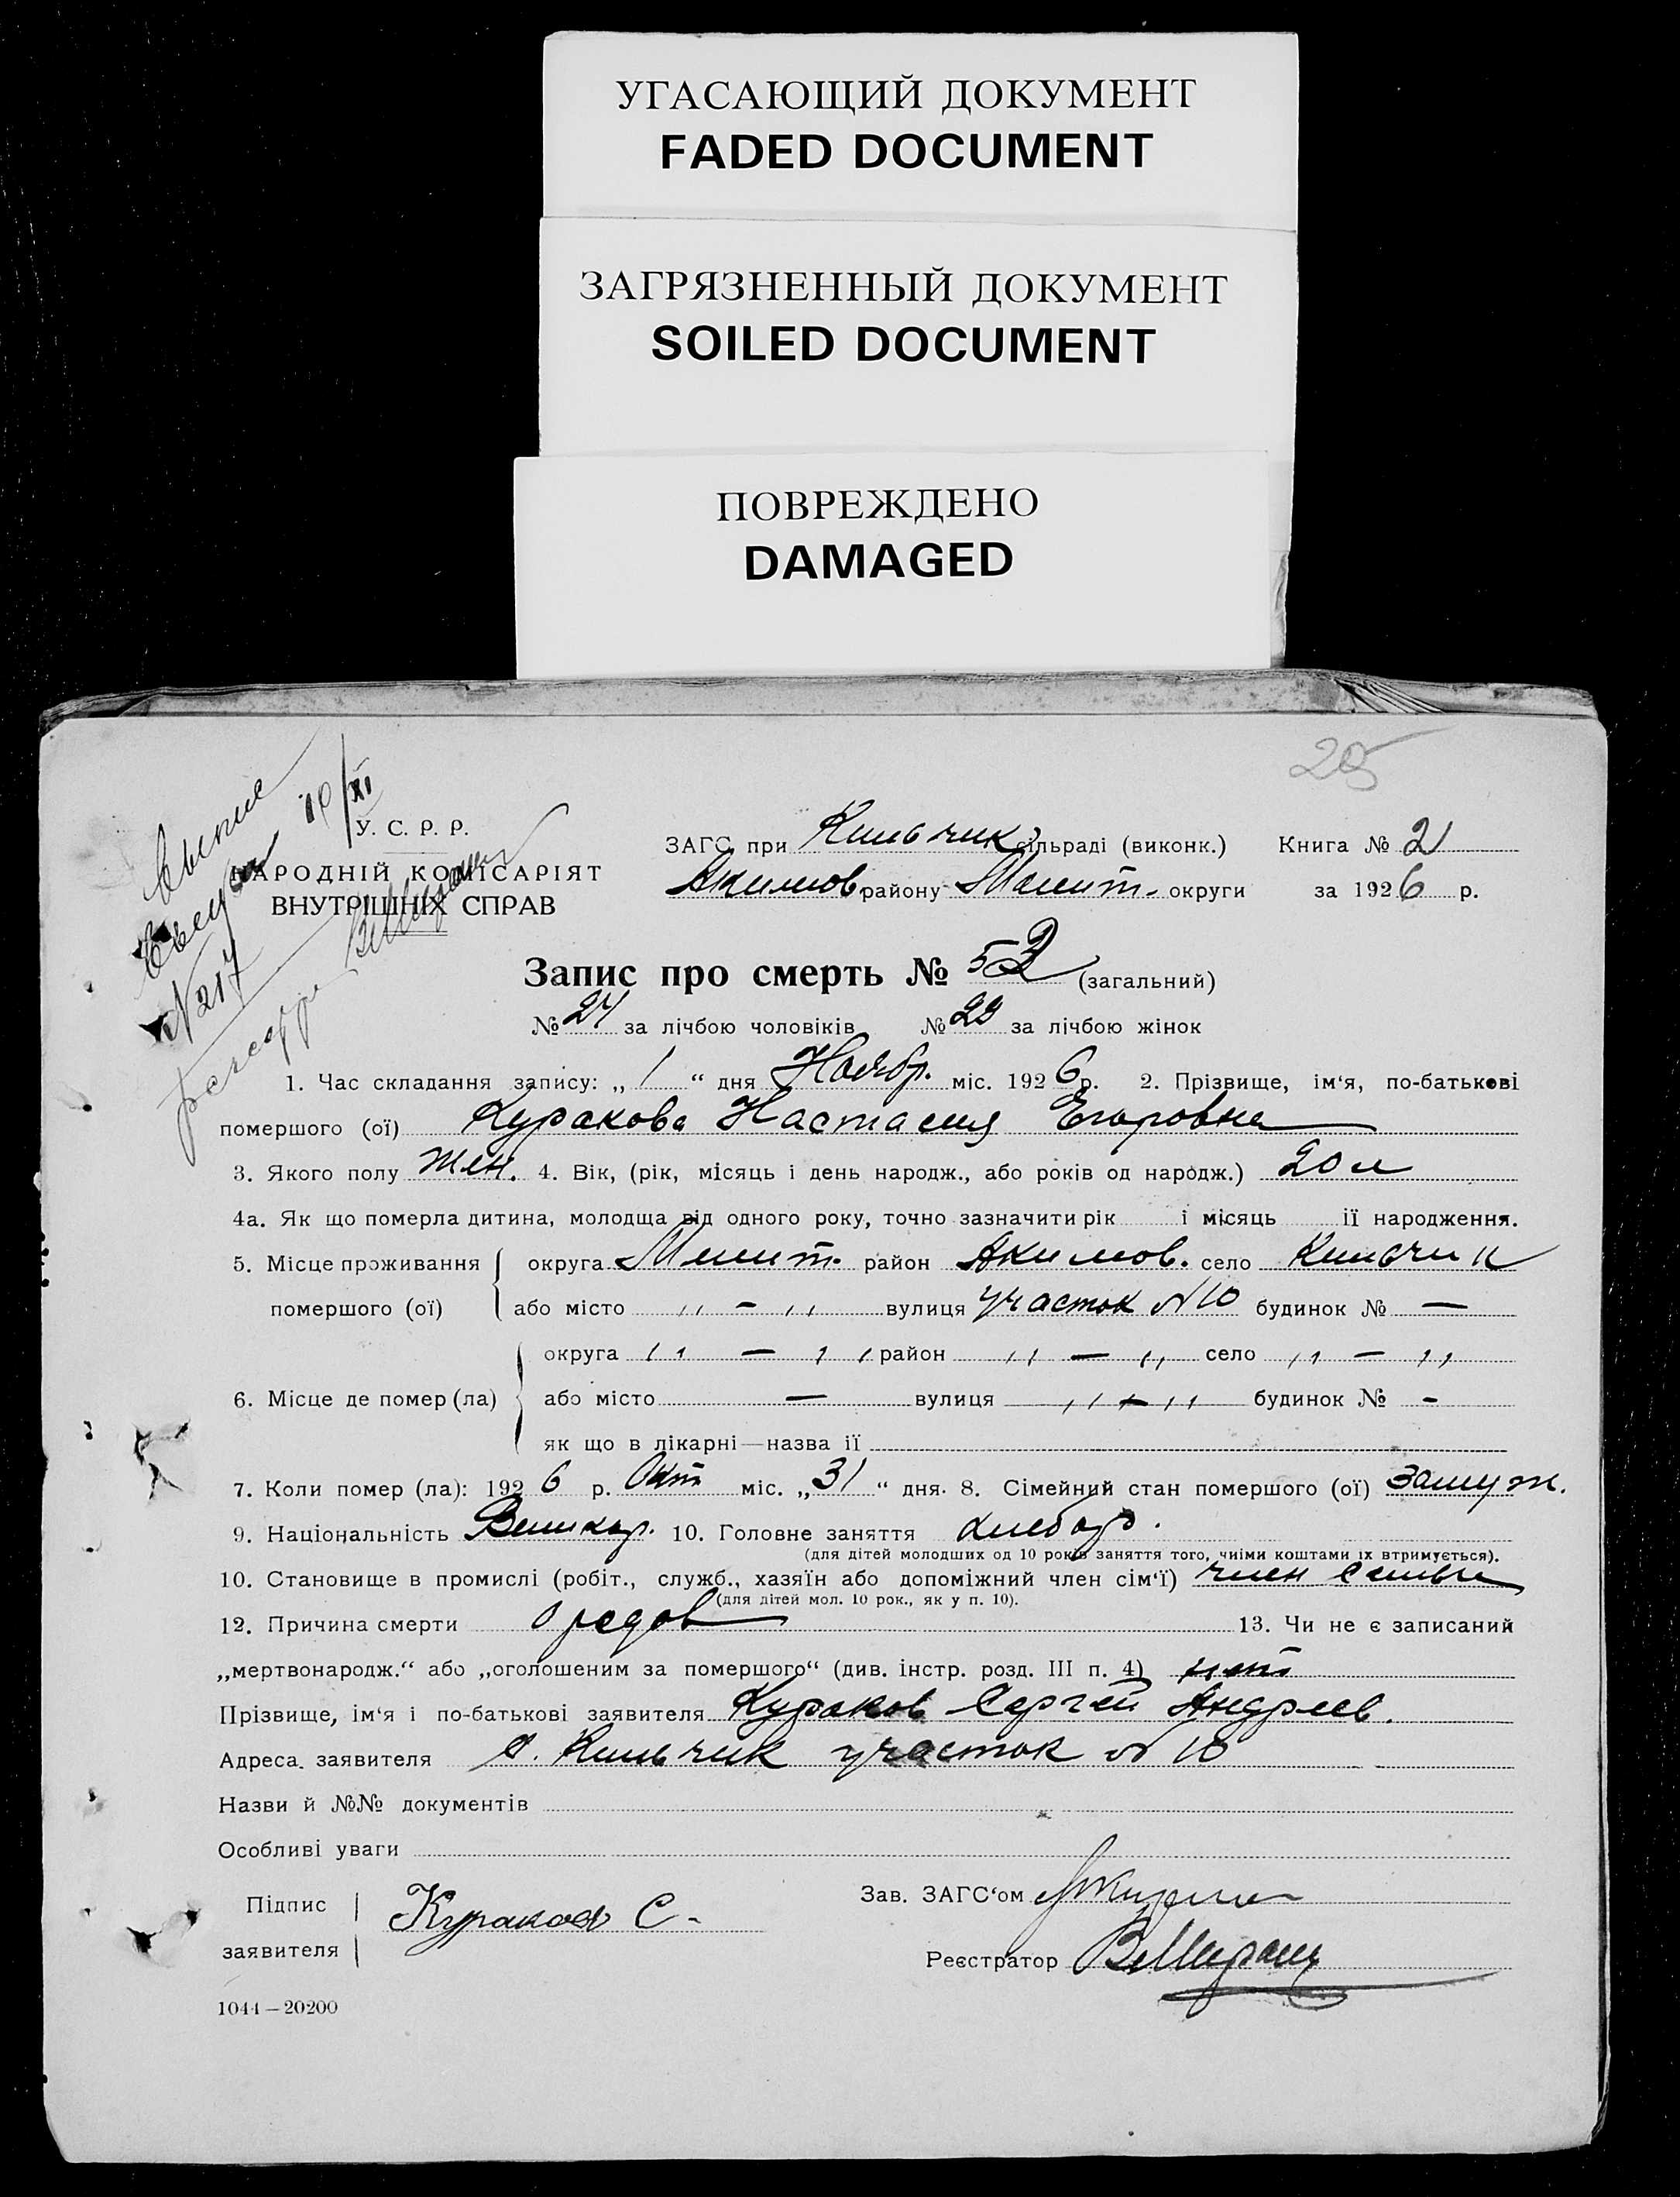 УГАСАЮЩИЙ ДОКУМЕНТ
FADED DOCUMENT
ЗАГРЯЗНЕННЫЙ ДОКУМЕНТ
SOILED DOCUMENT
ПОВРЕЖДЕНО
DAMAGED
25
10/XI
N 217
У. С. Р. Р.
НАРОДНІЙ КОМІСАРІЯТ
ВНУТРІШНІХ СПРАВ
ЗАГС при Кильчик сільраді (виконк.) Книга № 2
Акимов району Мелит. округи за 1926 р.
Запис про смерть № 53 (загальний)
№ 24 за лічбою чоловіків № 29 за лічбою жінок
1. Час складання запису: „ 1 “ дня Ноябр. міс. 1926 р. 2. Прізвище, ім‘я, по-батькові
помершого (ої) Куракова Настасия Егоровна
3. Якого полу жен. 4. Вік, (рік, місяць і день народж., або років од народж.) 20 л
4а. Як що померла дитина, молодща від одного року, точно зазначити рік і місяць ії народження.
5. Місце проживання округа Мелит. район Акимов. село Кильчик
помершого (ої) або місто „ – „ вулиця участок N 10 будинок № —
округа „ — „ район „ — „ село „ — „
6. Місце де помер (ла) або місто — вулиця „ — „ будинок № -
як що в лікарні—назва ії
7. Коли помер (ла): 1926 р. Окт міс. „31“ дня. 8. Сімейний стан помершого (ої) замуж.
9. Національність Великор. 10. Головне заняття хлебор.
(для дітей молодших од 10 років заняття того, чиіми коштами іх втримується).
10. Становище в промислі (робіт., служб., хазяїн або допоміжний член сім‘ї) член семьи
(для дітей мол. 10 рок., як у п. 10).
12. Причина смерти 13. Чи не є записаний
„мертвонародж.“ або „оголошеним за помершого“ (див. інстр. розд. III п. 4) нет
Прізвище, ім‘я і по-батькові заявителя Кураков Сергей Андреев.
Адреса заявителя с. Кильчик участок N 10
Назви й №№ документів
Особливі уваги
Підпис
заявителя Кураков С.
Зав. ЗАГС‘ом
Реєстратор
1044—20200